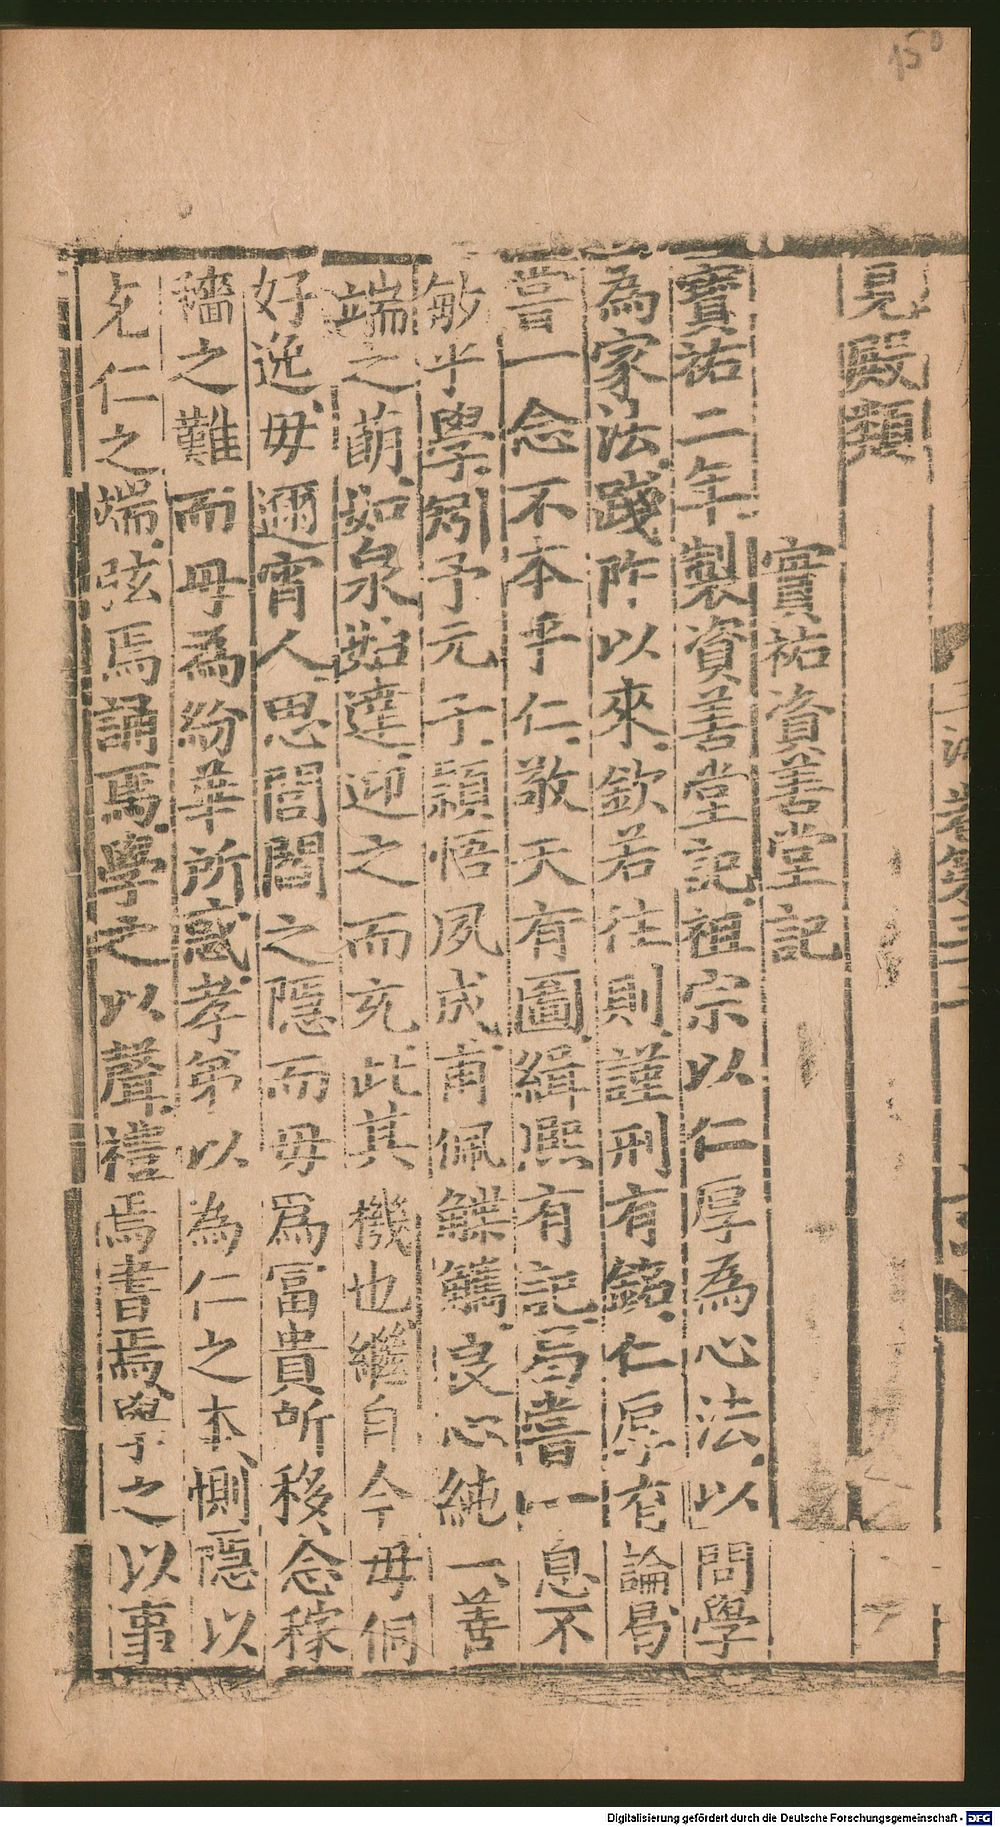 150
見殿類
寶祐資善堂記
寶祐二年製資善堂記祖宗以仁厚為心法以問學
為家法踐阼以來欽若往則謹刑有銘仁厚有論曷
嘗一念不本乎仁敬天有圖緝熈有記曷嘗一息不
敏乎學矧予元子穎悟夙成甫佩觿良心純一善
端之萌如泉始達迎之而充此其機也繼自今毋侗
好逸毋邇宵人思閭閻之隱而毋爲冨貴所移念稼
穡之難而毋為紛華所惑孝弟以為仁之本惻隱以
充仁之端弦焉誦焉學之以聲禮焉書焉學之以事
Digitalisierung gefördert durch die Deutsche Forschungsgemeinschaft - DFG